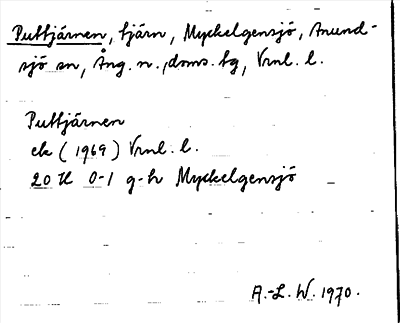 Puttjärnen, tjärn, Myckelgensjö, Anund-
sjö sn, Ång. n., doms. tg, Vrnl. l.
Puttjärnen
ek (1969) Vrnl. l.
20 H 0-1 g-h Myckelgensjö
A.-L. W. 1970.